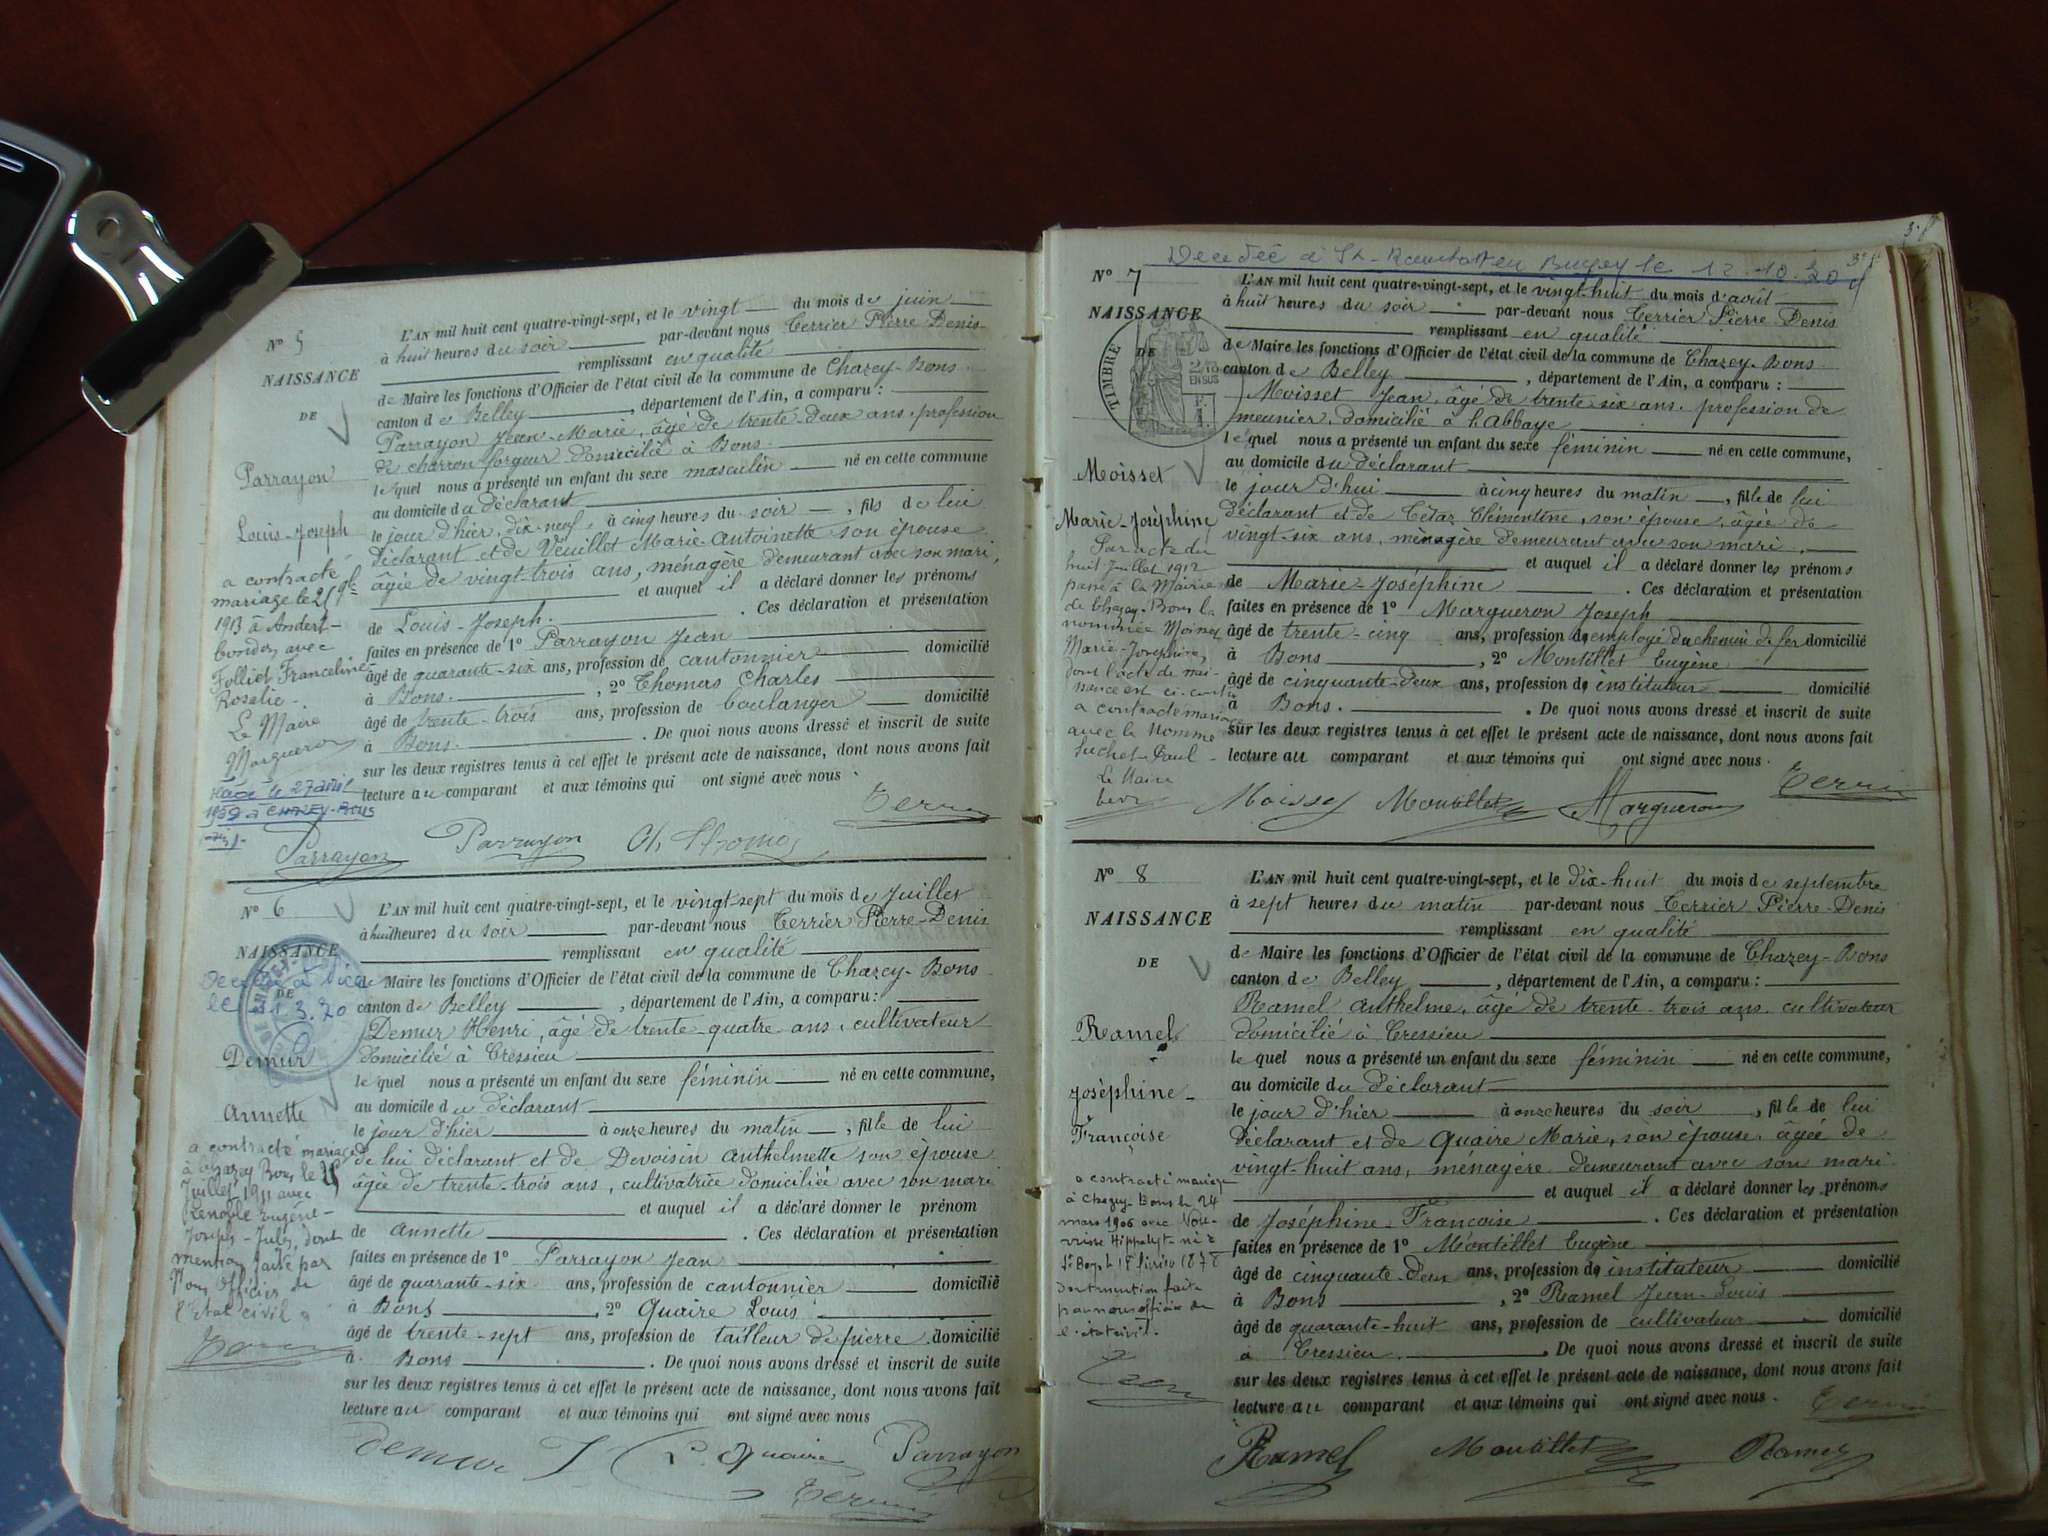 N° 5
NAISSANCE
DE
Parrayon
Louis-Joseph
a contracté
mariage le 25
1913 à Andert-
Condon, avec
Folliet Franceline
Rosalie.
Le Maire
Margueron
le 27 avril
1959 à CHAZEY-BONS
L'AN mil huit cent quatre-vingt-sept, et le vingt du mois de juin
à huit heures du soir par-devant nous Terrier Pierre Denis
remplissant en qualité
de Maire les fonctions d'Officier de l'état civil de la commune de Chazey-Bons.
canton de Belley, département de l'Ain, a comparu :
Parrayon Jean-Marie, âgé de trente deux ans, profession
de charron forgeur domicilié à Bons.
lequel nous a présenté un enfant du sexe masculin né en cette commune,
au domicile du déclarant
le jour d'hier, dix-neuf, à cinq heures du soir, fils de lui
déclarant et de Veuillet Marie-Antoinette son épouse
âgée de vingt-trois ans, ménagère demeurant avec son mari,
et auquel il a déclaré donner les prénoms
de Louis-Joseph. . Ces déclaration et présentation
faites en présence de 1° Parrayon Jean
âgé de quarante-six ans, profession de cantonnier domicilié
à Bons. , 2° Thomas Charles
âgé de trente-trois ans, profession de boulanger domicilié
à Bons. . De quoi nous avons dressé et inscrit de suite
sur les deux registres tenus à cet effet le présent acte de naissance, dont nous avons fait
lecture au comparant et aux témoins qui ont signé avec nous.
Terrier
Parrayon Parrayon Ch. Thomas
N° 6
NAISSANCE
DE
le 3.70
Demur
Annette
a contracté mariage
à Chazey Bons le 25
Juillet 1911 avec
Eugène-
Joseph-Jules, dont
mention faite par
Nous Officier de
l'Etat civil.
L'AN mil huit cent quatre-vingt-sept, et le vingt-sept du mois de Juillet
à huit heures du soir par-devant nous Terrier Pierre-Denis
remplissant en qualité
de Maire les fonctions d'Officier de l'état civil de la commune de Chazey-Bons
canton de Belley, département de l'Ain, a comparu :
Demur Henri, âgé de trente quatre ans, cultivateur
domicilié à Cressieu
lequel nous a présenté un enfant du sexe féminin né en cette commune,
au domicile du déclarant
le jour d'hier à onze heures du matin, fille de lui
de lui déclarant et de Devoisin Anthelmette son épouse
âgée de trente-trois ans, cultivatrice domiciliée avec son mari
et auquel il a déclaré donner le prénom
de Annette . Ces déclaration et présentation
faites en présence de 1° Parrayon Jean
âgé de quarante-six ans, profession de cantonnier domicilié
à Bons , 2° Quaire Louis
âgé de trente-sept ans, profession de tailleur de pierre domicilié
à Bons . De quoi nous avons dressé et inscrit de suite
sur les deux registres tenus à cet effet le présent acte de naissance, dont nous avons fait
lecture au comparant et aux témoins qui ont signé avec nous
Demur L. Quaire Parrayon
Terrier
Decedée à St-Rambert en Bugey le 12.10.70
N° 7
NAISSANCE
DE
TIMBRE
2/10
EN SUS
Moisset
Marie-Joséphine
Par acte du
huit Juillet 1912
passé à la Mairie
de Chazey-Bons la
nommée
Marie-Joséphine,
dont l'acte de nais-
sance est ci-contre
a contracté mariage
avec le nommé
Suchet Paul
Le Maire
L'AN mil huit cent quatre-vingt-sept, et le vingt-huit du mois d'août
à huit heures du soir par-devant nous Terrier Pierre-Denis
remplissant en qualité
de Maire les fonctions d'Officier de l'état civil de la commune de Chazey-Bons.
canton de Belley, département de l'Ain, a comparu :
Moisset Jean, âgé de trente-six ans, profession de
meunier, domicilié à l'Abbaye
lequel nous a présenté un enfant du sexe féminin né en cette commune,
au domicile du déclarant
le jour d'hui à cinq heures du matin, fille de lui
déclarant et de Tétaz Clémentine, son épouse, âgée de
vingt-six ans, ménagère demeurant avec son mari.
et auquel il a déclaré donner les prénoms
de Marie-Joséphine . Ces déclaration et présentation
faites en présence de 1° Margueron Joseph
âgé de trente-cinq ans, profession de employé du chemin de fer domicilié
à Bons , 2° Montillet Eugène
âgé de cinquante-deux ans, profession de instituteur domicilié
à Bons. . De quoi nous avons dressé et inscrit de suite
sur les deux registres tenus à cet effet le présent acte de naissance, dont nous avons fait
lecture au comparant et aux témoins qui ont signé avec nous.
Moisset Montillet Margueron Terrier
N° 8
NAISSANCE
DE
Ramel
Joséphine-
Françoise
a contracté mariage
à Chazey-Bons le 24
mars 1906 avec
Hippolyte né à
dont mention faite
par nous officier de
l'état civil.
L'AN mil huit cent quatre-vingt-sept, et le dix-huit du mois de septembre
à sept heures du matin par-devant nous Terrier Pierre-Denis
remplissant en qualité
de Maire les fonctions d'Officier de l'état civil de la commune de Chazey-Bons
canton de Belley, département de l'Ain, a comparu :
Ramel Anthelme, âgé de trente-trois ans, cultivateur
domicilié à Cressieu
lequel nous a présenté un enfant du sexe féminin né en cette commune,
au domicile du déclarant
le jour d'hier à onze heures du soir, fille de lui
déclarant et de Quaire Marie, son épouse, âgée de
vingt-huit ans, ménagère demeurant avec son mari
et auquel il a déclaré donner les prénoms
de Joséphine-Françoise . Ces déclaration et présentation
faites en présence de 1° Montillet Eugène
âgé de cinquante-deux ans, profession de instituteur domicilié
à Bons , 2° Ramel Jean-Louis
âgé de quarante-huit ans, profession de cultivateur domicilié
à Cressieu. . De quoi nous avons dressé et inscrit de suite
sur les deux registres tenus à cet effet le présent acte de naissance, dont nous avons fait
lecture au comparant et aux témoins qui ont signé avec nous.
Terrier
Ramel Montillet Ramel